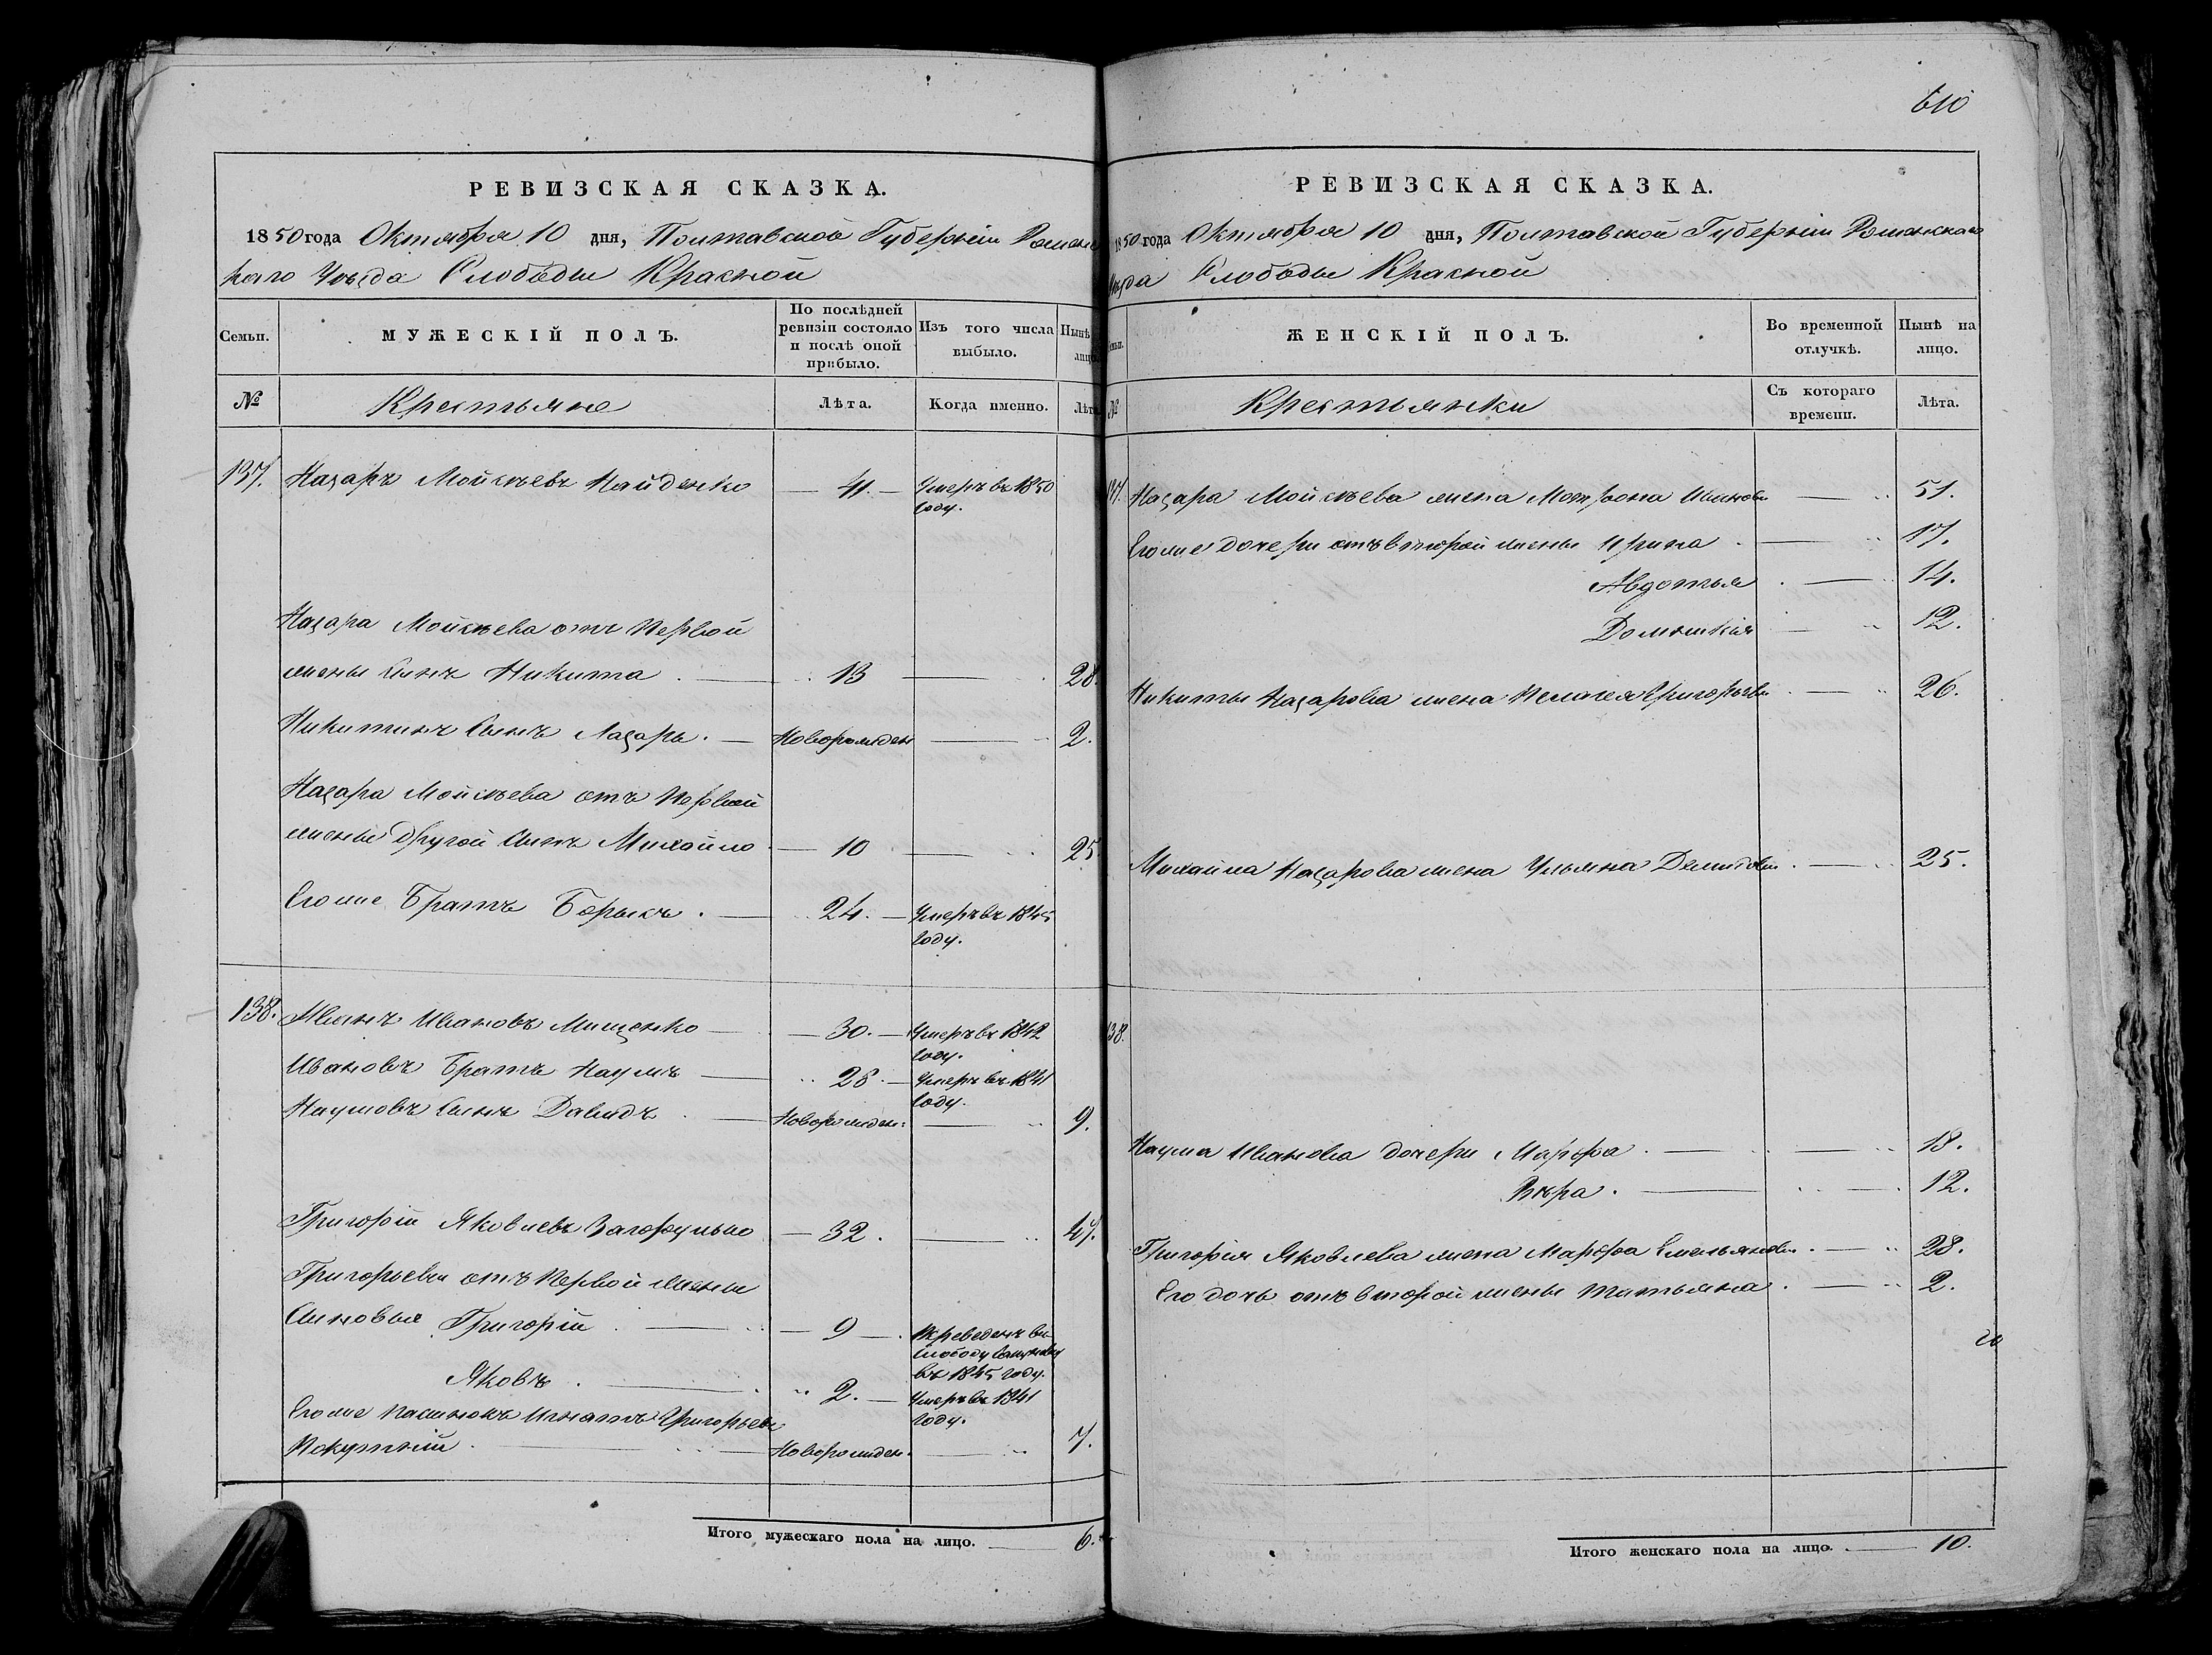 РЕВИЗСКАЯ СКАЗКА.
1850 года Октября 10 дня, Полтавской Губерніи Роменс
каго Уѣзда Слободы Красной
Семьи.
МУЖЕСКІЙ ПОЛЪ.
По послѣдней ревизіи состояло и послѣ оной прибыло.
Изъ того числа выбыло.
Нынѣ лицо
№
Крестьяне
Лѣта.
Когда именно.
Лѣта
137. Назаръ Мойсѣевъ Найденко — 41. — Умеръ въ 1850
году.
Назара Мойсѣева отъ первой
жены сынъ Никита . — 13 — 28.
Никитинъ сынъ Лазарь. — Новорожден — 2.
Назара Мойсѣева отъ первой
жены другой сынъ Михайло — 10 — 25.
Егоже братъ Борысъ . — 24. — Умеръ въ 1845
году.
138. Иванъ Ивановъ Мищенко — 30. — Умеръ въ 1842
году.
Ивановъ братъ Наумъ — 28. — Умеръ въ 1841
году.
Наумовъ сынъ Давидъ . — Новорожден: — 9.
Григорій Яковлевъ Загорулько — 32. — 47.
Григорьевы отъ первой жены
сыновья Григорій . — 9 — Переведенъ въ
слободу
въ 1845 году.
Яковъ . — 2. — Умеръ въ 1841
году.
Егоже пасынокъ Игнатъ Григорьевъ
Покутній . — Новорожден. — 7.
Итого мужескаго пола на лицо. — 6.
610
РЕВИЗСКАЯ СКАЗКА.
1850 года Октября 10 дня, Полтавской Губерніи Роменскаго
Уѣзда Слободы Красной
ЖЕНСКІЙ ПОЛЪ.
Во временной отлучкѣ.
Нынѣ на лицо.
№
Крестьянки
Съ котораго времени.
Лѣта.
137. Назара Мойсѣева жена Мотрона Иванова — 51.
Егоже дочери отъ второй жены Ирина . — 17.
Авдотья . — 14.
Домникія — 12.
Никиты Назарова жена Пелагея Григорьева . — 26.
Михайла Назарова жена Ульяна Демидова . — 25.
138.
Наума Иванова дочери Марфа . — 18.
Вѣра . — 12.
Григорія Яковлева жена Марфа Емельянова . — 28.
Его дочь отъ второй жены Татьяна . — 2.
Итого женскаго пола на лицо. — 10.